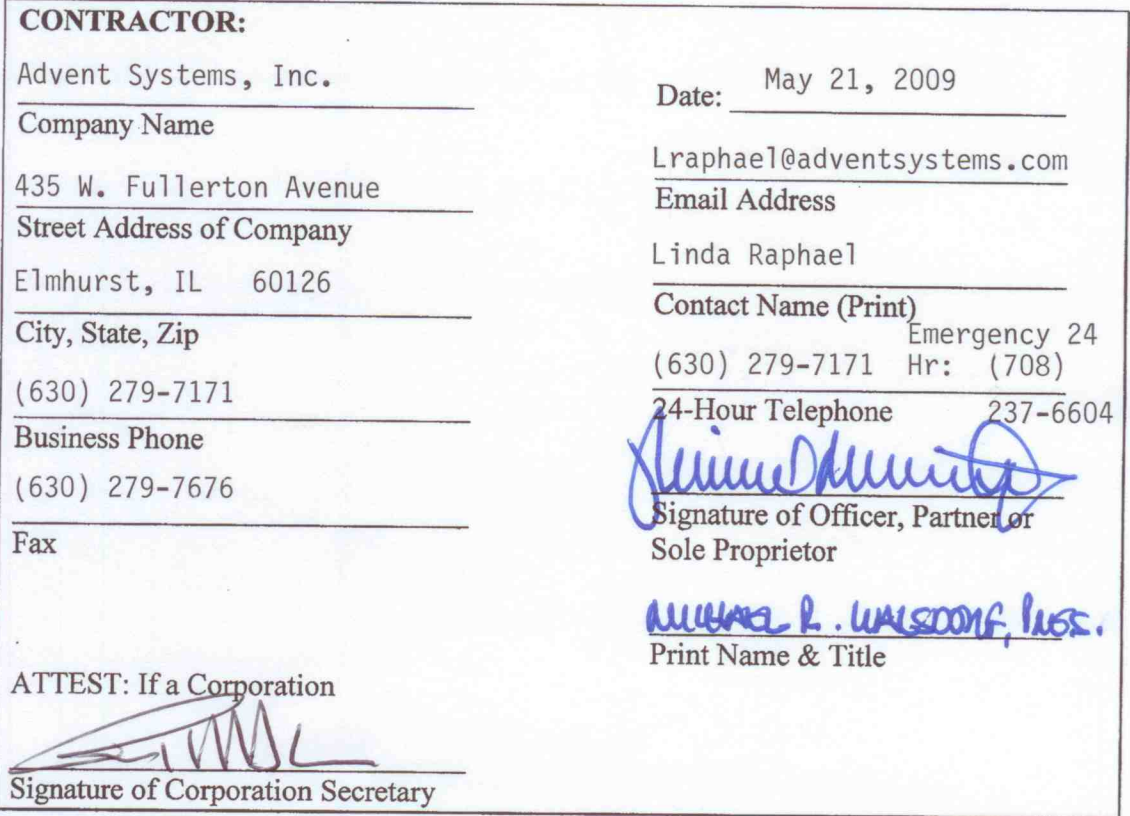 CONTRACTOR:
Advent Systems, Inc.
Company Name
435 W. Fullerton Avenue
Street Address of Company
Elmhurst, IL 60126
City, State, Zip
(630) 279-7171
Business Phone
(630) 279-7676
Fax
ATTEST: If a Corporation
Signature of Corporation Secretary
Date: May 21, 2009
Lraphael@adventsystems.com
Email Address
Linda Raphael
Contact Name (Print)
Emergency 24
(630) 279-7171 Hr: (708)
24-Hour Telephone 237-6604
Signature of Officer, Partner or
Sole Proprietor
MICHAEL R. WALSDORF, PRES.
Print Name & Title